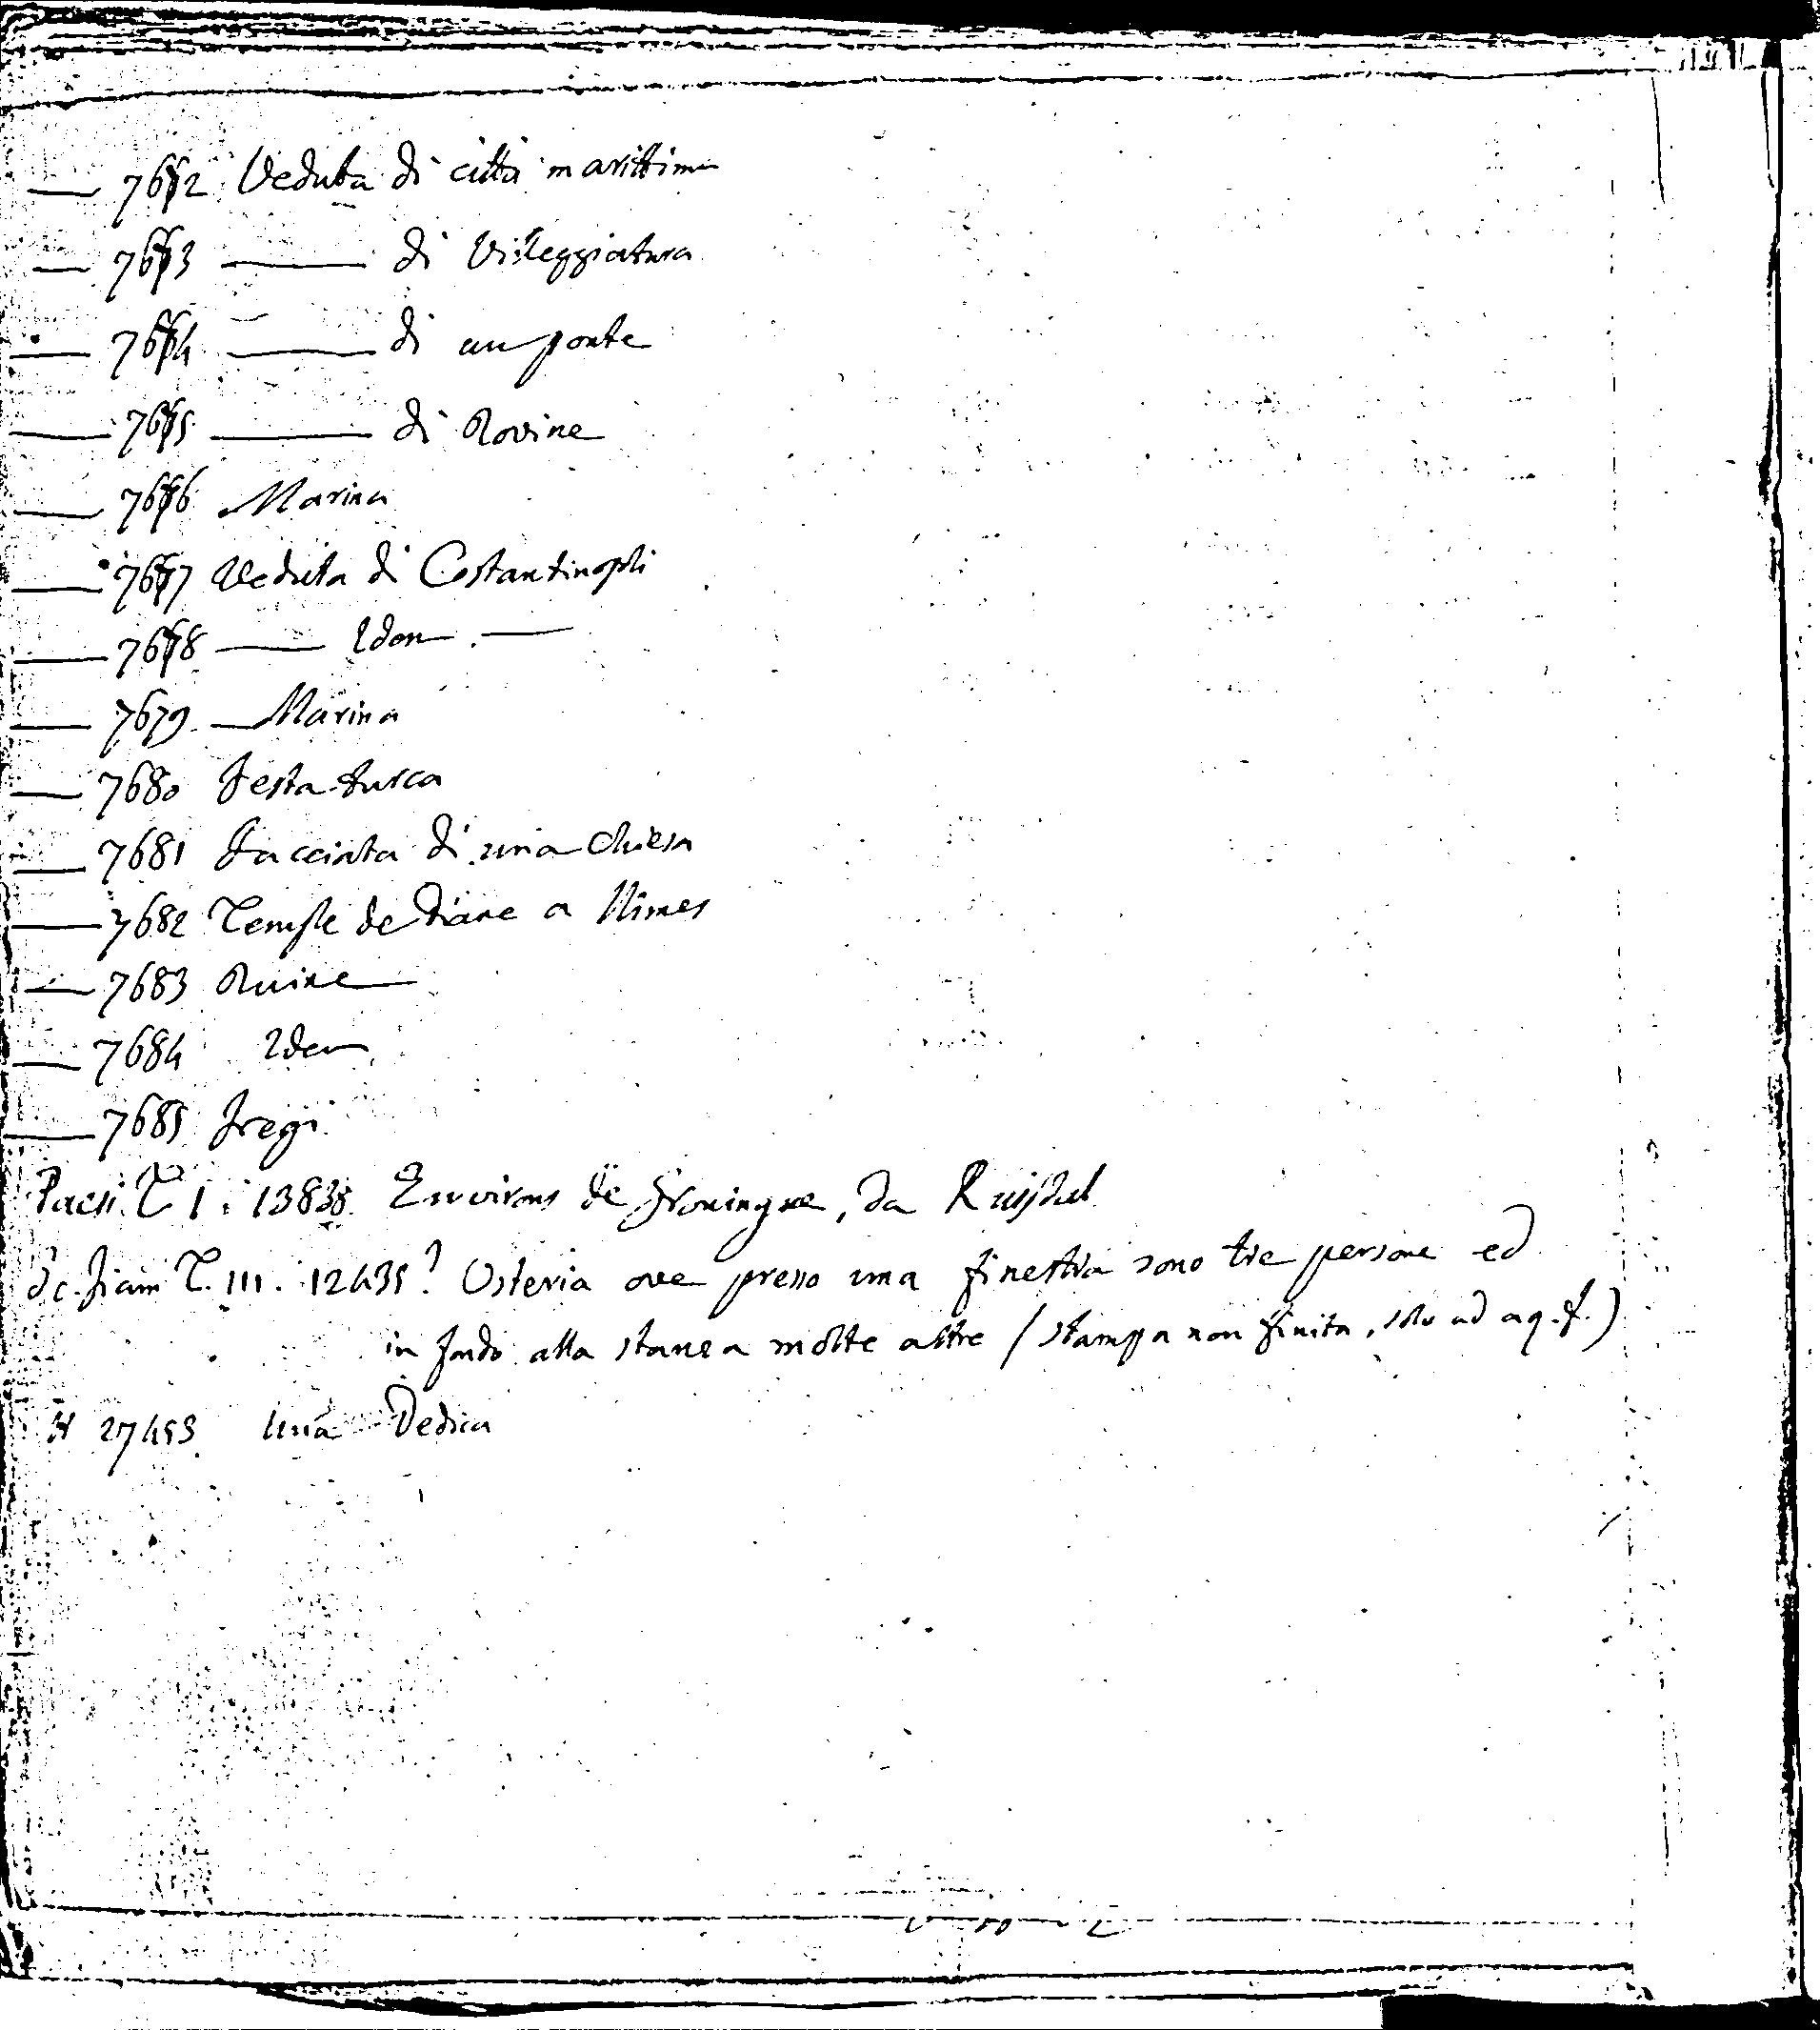 — 7672 Veduta di città marittima
— 7673 —— di Villeggiatura
— 7674 —— di un ponte
— 7675 —— di Rovine
— 7676 Marina
— 7677 Veduta di Costantinopli
— 7678 —— Idem. —
— 7679 — Marina
— 7680 Festa turca
— 7681 Facciata di una Chiesa
— 7682 Temple de Diane a Nimes
— 7683 Ruine
— 7684 Idem
— 7685 Fregi
Paesi. T. I. 13838. Environs de Groningue, da Ruisdal
Sc. fiam T. III. 12435? Osteria ove presso una finestra sono tre persone ed
in fondo alla stanza molte altre (stampa non finita, solo ad aq. f.)
H 27453 Una Dedica